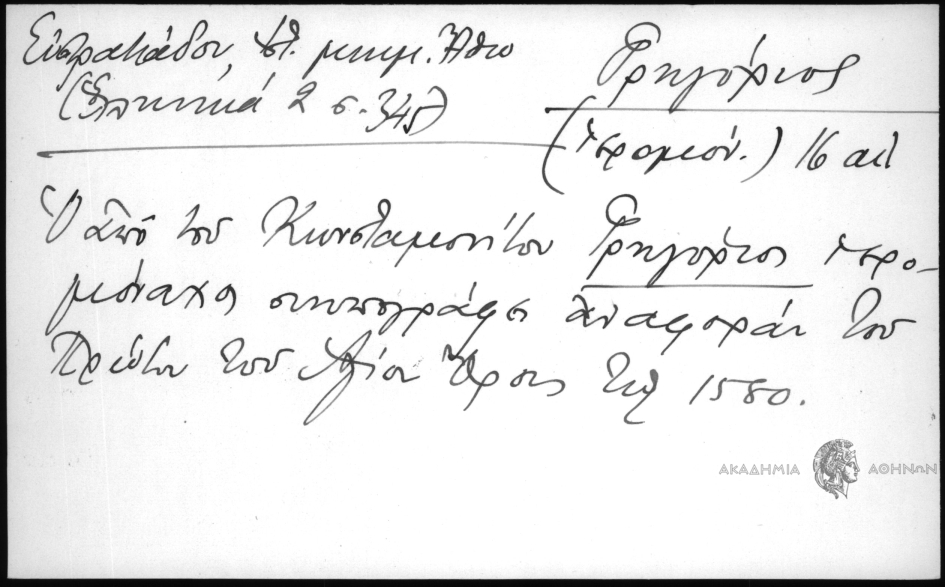 Εὐστρατιάδου, Ἱστ. μνημ. Ἄθω
(Ἑλληνικά 2 σ. 345)
Γρηγόριος
(ἱερομόν.) 16 αἰ.
Ὁ ἀπὸ τοῦ Κωνσταμονίτου Γρηγόριος ἱερο-
μόναχος συνυπογράφει ἀναφορὰν τοῦ
Πρώτου τοῦ Ἁγίου Ὄρους τῷ 1580.
ΑΚΑΔΗΜΙΑ ΑΘΗΝΩΝ